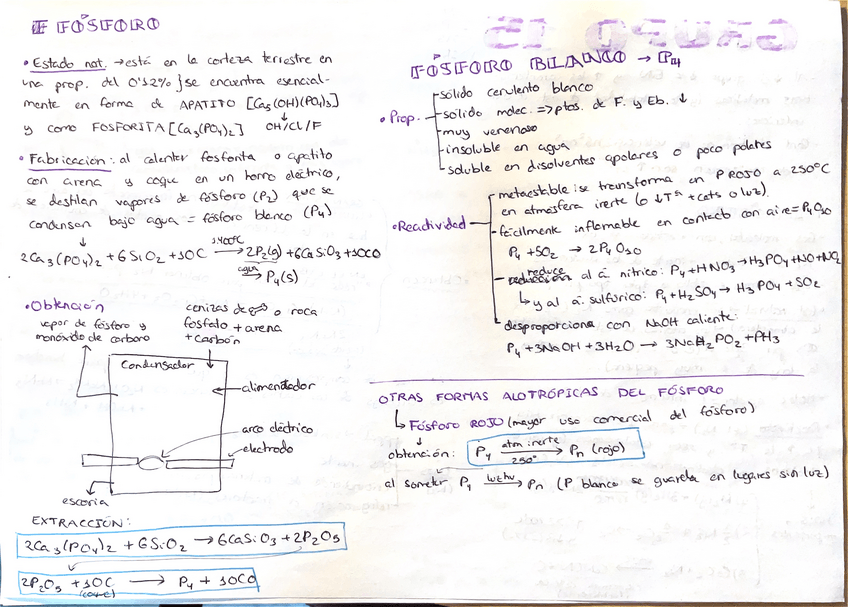 FÓSFORO
• Estado nat. → está en la corteza terrestre en
una prop. del 0'12% } se encuentra esencial-
mente en forma de APATITO [Ca₅(OH)(PO₄)₃]
y como FOSFORITA [Ca₃(PO₄)₂] OH/Cl/F
• Fabricación: al calentar fosforita o apatito
con arena y coque en un horno eléctrico,
se destilan vapores de fósforo (P₂) que se
condensan bajo agua = fósforo blanco (P₄)
2Ca₃(PO₄)₂ + 6SiO₂ + 10C 1400ºC → 2P₂(g) + 6CaSiO₃ + 10CO
agua → P₄(s)
• Obtención
vapor de fósforo y
monóxido de carbono
cenizas de o roca
fosfato + arena
+ carbón
Condensador
alimentador
arco eléctrico
electrodo
escoria
EXTRACCIÓN:
2Ca₃(PO₄)₂ + 6SiO₂ → 6CaSiO₃ + 2P₂O₅
2P₂O₅ + 10C → P₄ + 10CO
(coke)
GRUPO 15
FÓSFORO BLANCO → P₄
• Prop.
sólido cerulento blanco
sólido molec. => ptos. de F. y Eb. ↓
muy venenoso
insoluble en agua
soluble en disolventes apolares o poco polares
• Reactividad
metaestable: se transforma en P ROJO a 250ºC
en atmósfera inerte (o ↓Tª + cats o luz).
fácilmente inflamable en contacto con aire = P₄O₁₀
P₄ + 5O₂ → 2P₄O₁₀
reduce al á. nítrico: P₄ + HNO₃ → H₃PO₄ + NO + NO₂
↳ y al á. sulfúrico: P₄ + H₂SO₄ → H₃PO₄ + SO₂
desproporciona con NaOH caliente:
P₄ + 3NaOH + 3H₂O → 3NaH₂PO₂ + PH₃
OTRAS FORMAS ALOTRÓPICAS DEL FÓSFORO
↳ Fósforo ROJO (mayor uso comercial del fósforo)
obtención: P₄ atm inerte → 250º Pn (rojo)
al someter P₄ → Pn (P blanco se guarda en lugares sin luz)